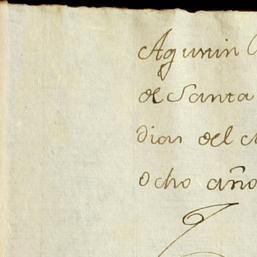 Agustin
de Santa
dias del
ocho año